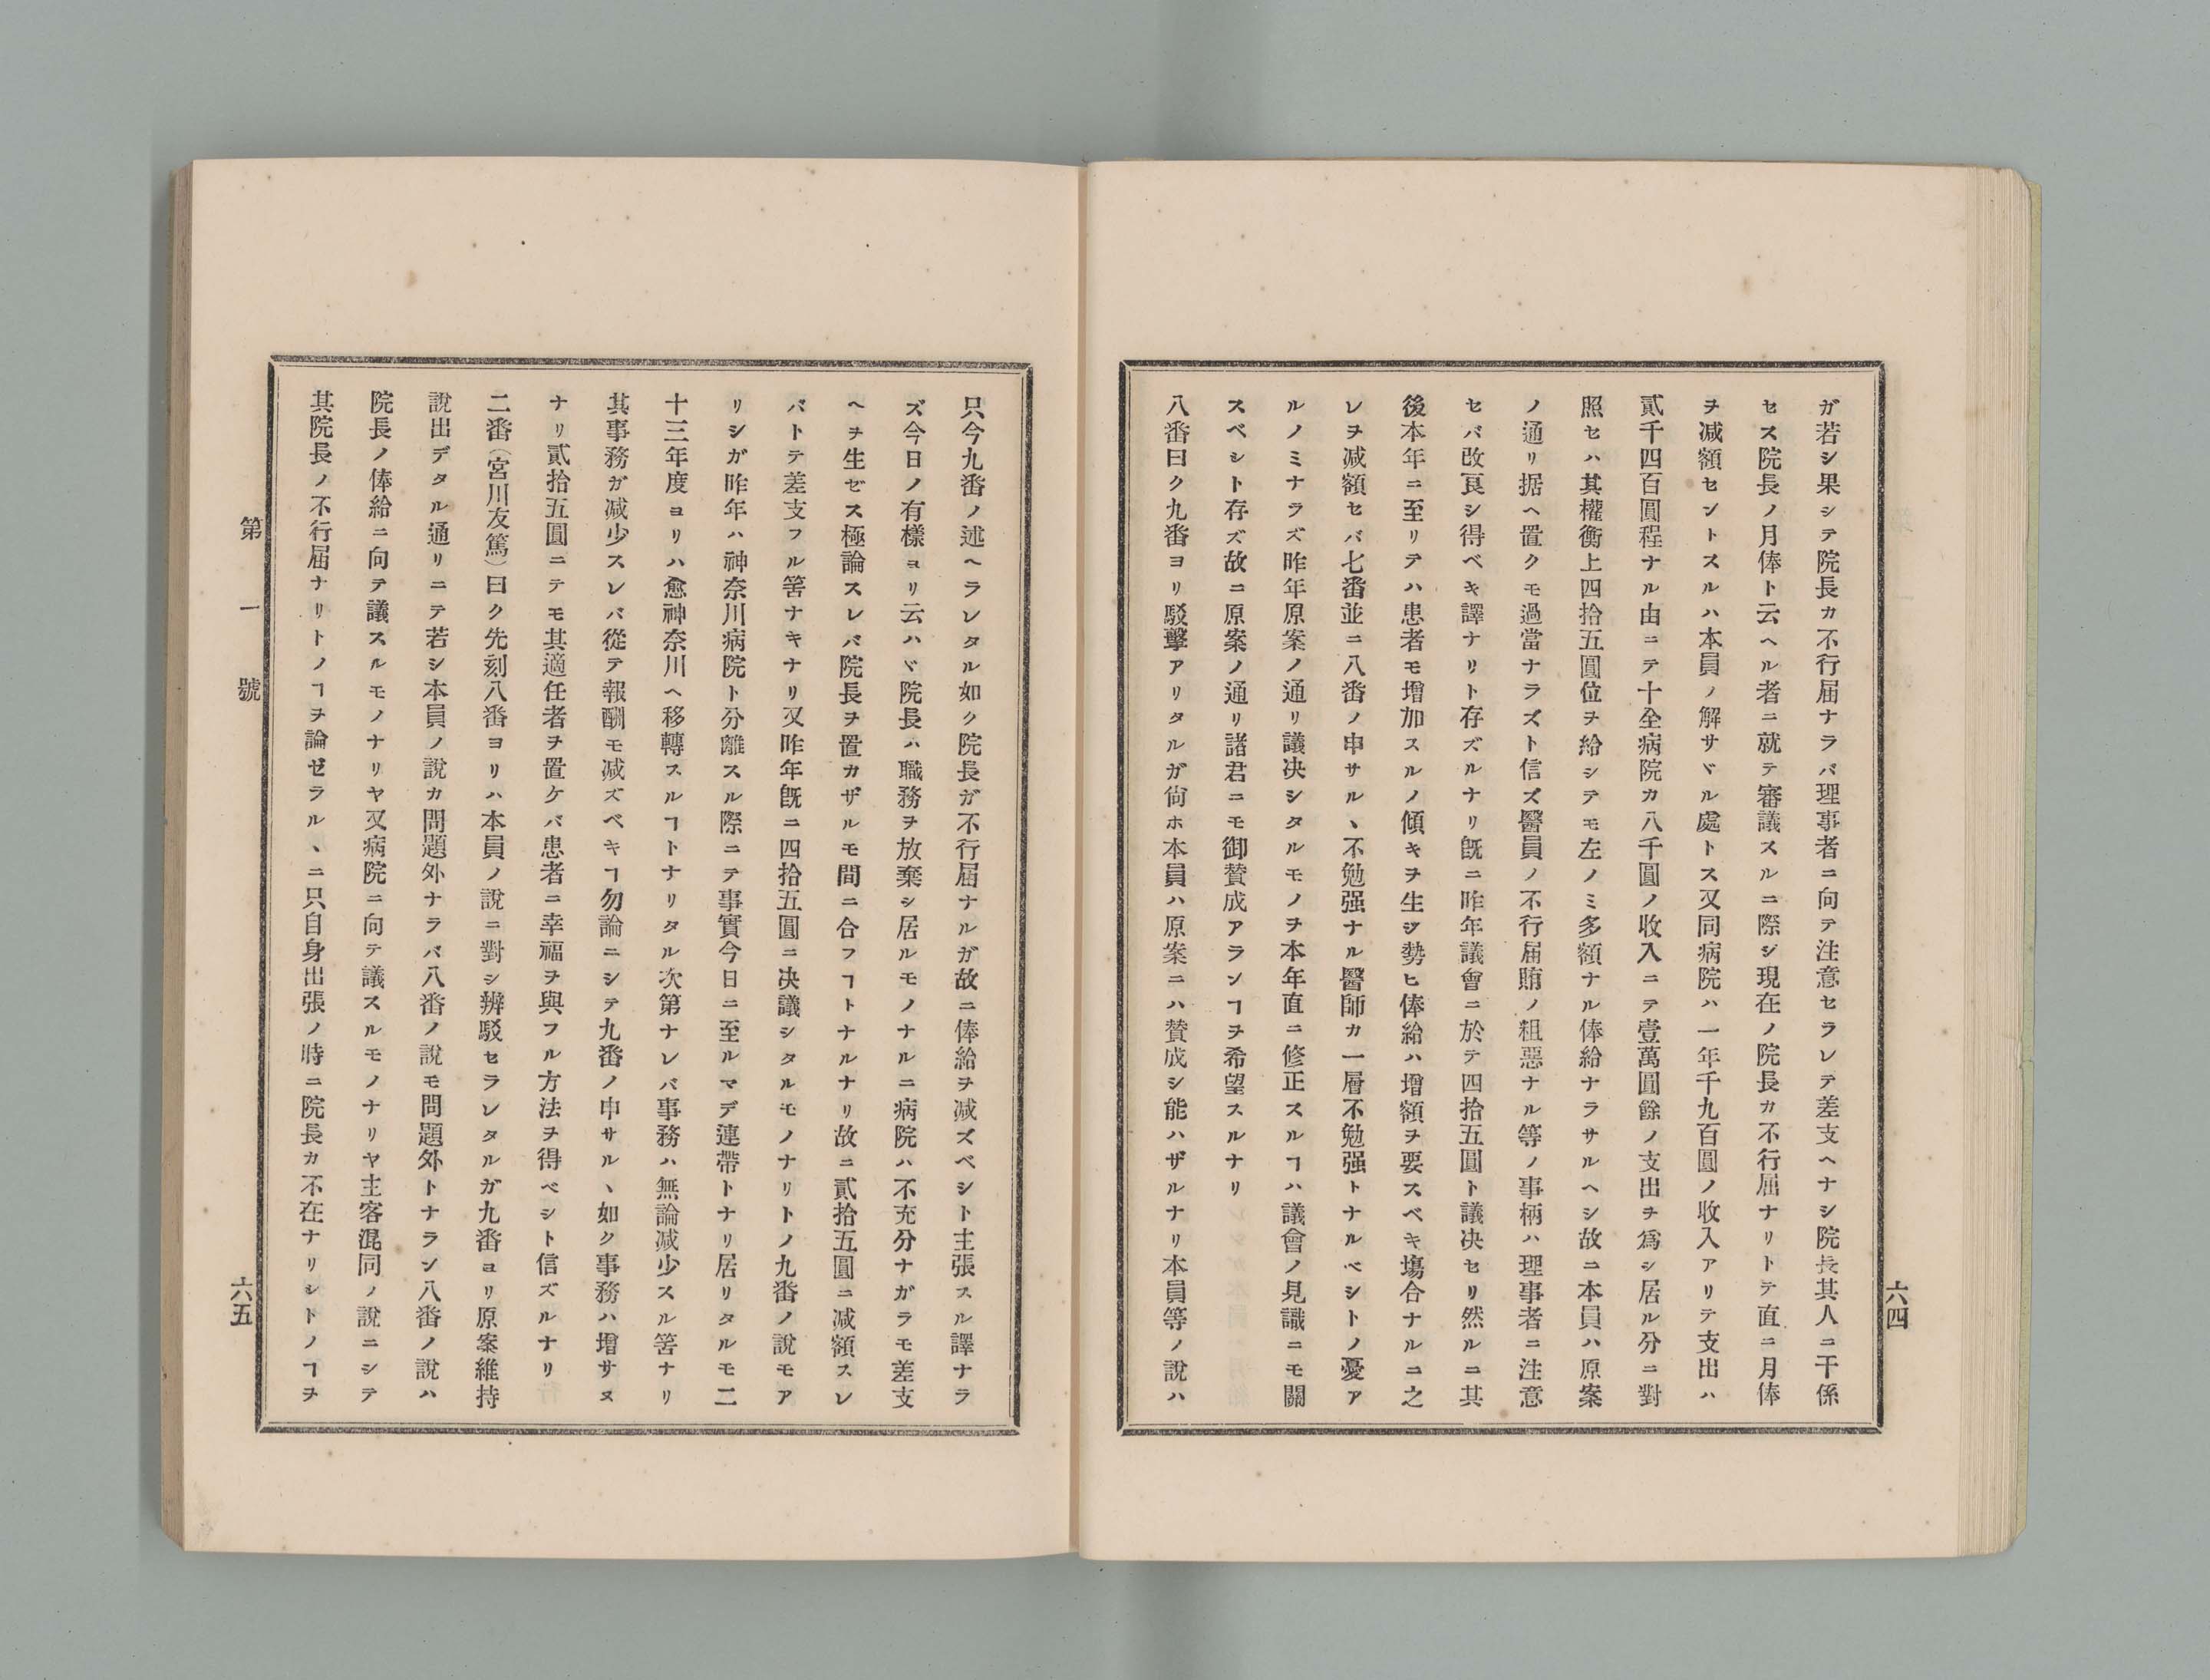 六四
ガ若シ果シテ院長カ不行届ナラバ理事者ニ向テ注意セラレテ差支ヘナシ院長其人ニ干係
セス院長ノ月俸ト云ヘル者ニ就テ審議スルニ際シ現在ノ院長カ不行届ナリトテ直ニ月俸
ヲ减額セントスルハ本員ノ解サヾル處トス又同病院ハ一年千九百圓ノ收入アリテ支出ハ
貳千四百圓程ナル由ニテ十全病院カ八千圓ノ收入ニテ壹萬圓餘ノ支出ヲ爲シ居ル分ニ對
照セハ其權衡上四拾五圓位ヲ給シテモ左ノミ多額ナル俸給ナラサルヘシ故ニ本員ハ原案
ノ通リ据ヘ置クモ過當ナラズト信ズ醫員ノ不行届賄ノ粗惡ナル等ノ事柄ハ理事者ニ注意
セバ改良シ得ベキ譯ナリト存ズルナリ既ニ昨年議會ニ於テ四拾五圓ト議决セリ然ルニ其
後本年ニ至リテハ患者モ增加スルノ傾キヲ生ジ勢ヒ俸給ハ增額ヲ要スベキ塲合ナルニ之
レヲ减額セバ七番並ニ八番ノ申サルヽ不勉强ナル醫師カ一層不勉强トナルベシトノ憂ア
ルノミナラズ昨年原案ノ通リ議决シタルモノヲ本年直ニ修正スルヿハ議會ノ見識ニモ關
スベシト存ズ故ニ原案ノ通リ諸君ニモ御賛成アランヿヲ希望スルナリ
八番曰ク九番ヨリ駁擊アリタルガ尙ホ本員ハ原案ニハ賛成シ能ハザルナリ本員等ノ說ハ
只今九番ノ述ヘラレタル如ク院長ガ不行届ナルガ故ニ俸給ヲ减ズベシト主張スル譯ナラ
ズ今日ノ有樣ヨリ云ハヾ院長ハ職務ヲ放棄シ居ルモノナルニ病院ハ不充分ナガラモ差支
ヘヲ生ゼス極論スレバ院長ヲ置カザルモ間ニ合フヿトナルナリ故ニ貳拾五圓ニ减額スレ
バトテ差支フル筈ナキナリ又昨年既ニ四拾五圓ニ决議シタルモノナリトノ九番ノ說モア
リシガ昨年ハ神奈川病院ト分離スル際ニテ事實今日ニ至ルマデ連帶トナリ居リタルモ二
十三年度ヨリハ愈神奈川ヘ移轉スルヿトナリタル次第ナレバ事務ハ無論减少スル筈ナリ
其事務ガ减少スレバ從テ報酬モ减ズベキヿ勿論ニシテ九番ノ申サルヽ如ク事務ハ增サヌ
ナリ貳拾五圓ニテモ其適任者ヲ置ケバ患者ニ幸福ヲ與フル方法ヲ得ベシト信ズルナリ
二番（宮川友篤）曰ク先刻八番ヨリハ本員ノ說ニ對シ辨駁セラレタルガ九番ヨリ原案維持
說出デタル通リニテ若シ本員ノ說カ問題外ナラバ八番ノ說モ問題外トナラン八番ノ說ハ
院長ノ俸給ニ向テ議スルモノナリヤ又病院ニ向テ議スルモノナリヤ主客混同ノ說ニシテ
其院長ノ不行届ナリトノヿヲ論ゼラルヽニ只自身出張ノ時ニ院長カ不在ナリシトノヿヲ
第一號
六五